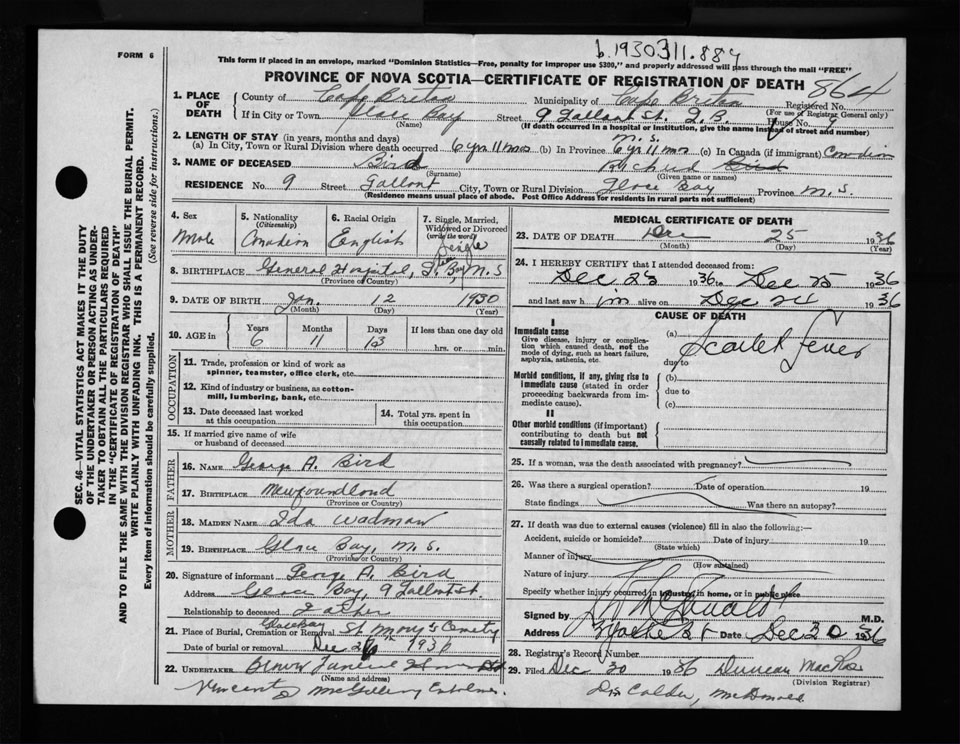 FORM 6
This form if placed in an envelope, marked "Dominion Statistics—Free, penalty for improper use $300," and properly addressed will pass through the mail "FREE"
PROVINCE OF NOVA SCOTIA—CERTIFICATE OF REGISTRATION OF DEATH 864
1. PLACE OF DEATH
County of Cape Breton Municipality of Cape Breton Registered No.
(For use of Registrar General only)
If in City or Town Glace Bay Street 9 Gallant St. G. B. House No. 9
(Name) (If death occurred in a hospital or institution, give the name instead of street and number)
2. LENGTH OF STAY (in years, months and days)
(a) In City, Town or Rural Division where death occurred 6 yr 11 mos (b) In Province N.S. 6 yr 11 mos (c) In Canada (if immigrant) Canadian
3. NAME OF DECEASED Bird
(Surname) (Given name or names)
RESIDENCE No. 9 Street Gallant City, Town or Rural Division Glace Bay Province N.S.
(Residence means usual place of abode. Post Office Address for residents in rural parts not sufficient)
4. Sex Male
5. Nationality (Citizenship) Canadian
6. Racial Origin English
7. Single, Married, Widowed or Divorced (write the word) Single
8. BIRTHPLACE General Hospital, G. Bay, N.S
(Province or Country)
9. DATE OF BIRTH Jan. 12 1930
(Month) (Day) (Year)
10. AGE in Years 6 Months 11 Days 13 If less than one day old
hrs. or min.
OCCUPATION
11. Trade, profession or kind of work as spinner, teamster, office clerk, etc.
12. Kind of industry or business, as cotton-mill, lumbering, bank, etc.
13. Date deceased last worked at this occupation
14. Total yrs. spent in this occupation
15. If married give name of wife or husband of deceased
FATHER
16. NAME George A. Bird
17. BIRTHPLACE Newfoundland
(Province or Country)
MOTHER
18. MAIDEN NAME Ida Wadman
19. BIRTHPLACE Glace Bay, N.S.
(Province or Country)
20. Signature of informant George A. Bird
Address Glace Bay, 9 Gallant St.
Relationship to deceased Father
21. Place of Burial, Cremation or Removal Glace Bay St Mary's Cemetery
Date of burial or removal Dec 26 1936
22. UNDERTAKER Brown Funeral Home
(Name and address)
Vincent
MEDICAL CERTIFICATE OF DEATH
23. DATE OF DEATH Dec 25 1936
(Month) (Day) (Year)
24. I HEREBY CERTIFY that I attended deceased from:
Dec 23 1936 to Dec 25 1936
and last saw h im alive on Dec 24 1936
CAUSE OF DEATH
I
Immediate cause
Give disease, injury or complication which caused death, not the mode of dying, such as heart failure, asphyxia, asthenia, etc.
(a) Scarlet Fever
due to
Morbid conditions, if any, giving rise to immediate cause (stated in order proceeding backwards from immediate cause).
(b)
due to
(c)
II
Other morbid conditions (if important) contributing to death but not causally related to immediate cause.
25. If a woman, was the death associated with pregnancy?
26. Was there a surgical operation? Date of operation 19
State findings Was there an autopsy?
27. If death was due to external causes (violence) fill in also the following:—
Accident, suicide or homicide? Date of injury 19
(State which)
Manner of injury
(How sustained)
Nature of injury
Specify whether injury occurred in industry, in home, or in public place
Signed by McDonald M.D.
Address Date Dec 30 1936
28. Registrar's Record Number
29. Filed Dec 30 1936 Duncan MacRae
(Division Registrar)
Drs Calder, McDonald
SEC. 46—VITAL STATISTICS ACT MAKES IT THE DUTY OF THE UNDERTAKER OR PERSON ACTING AS UNDERTAKER TO OBTAIN ALL THE PARTICULARS REQUIRED IN THE "CERTIFICATE OF REGISTRATION OF DEATH" AND TO FILE THE SAME WITH THE DIVISION REGISTRAR WHO SHALL ISSUE THE BURIAL PERMIT.
WRITE PLAINLY WITH UNFADING INK. THIS IS A PERMANENT RECORD.
Every item of information should be carefully supplied. (See reverse side for instructions.)